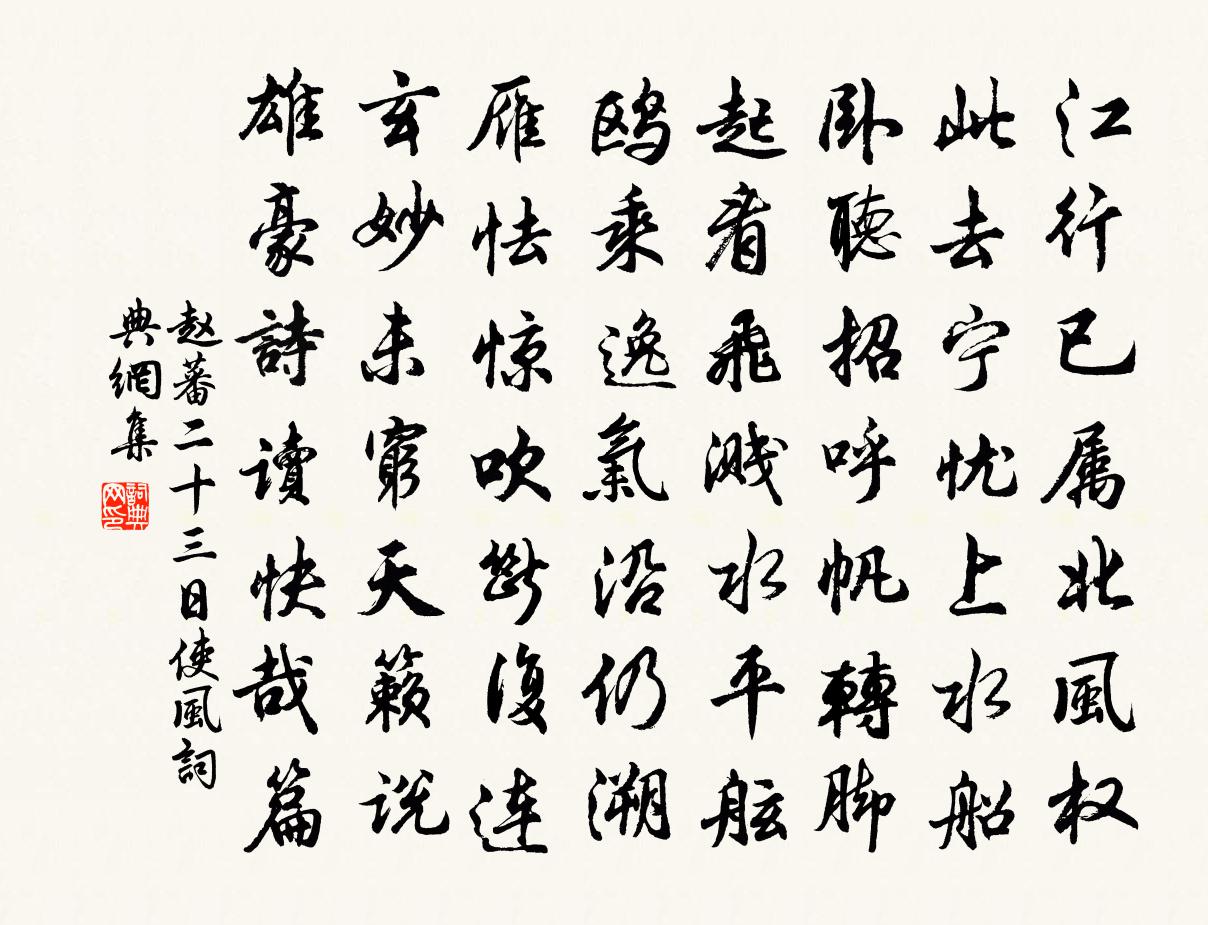 江行已属北風权
此去宁忧上水船
卧聽招呼帆轉脚
起看飛溅水平舷
鸥乘逸氣沿仍溯
雁怯惊吹斷復連
玄妙未窮天籟说
雄豪詩讀快哉篇
赵蕃二十三日使風詞
典網集
詞典
网印